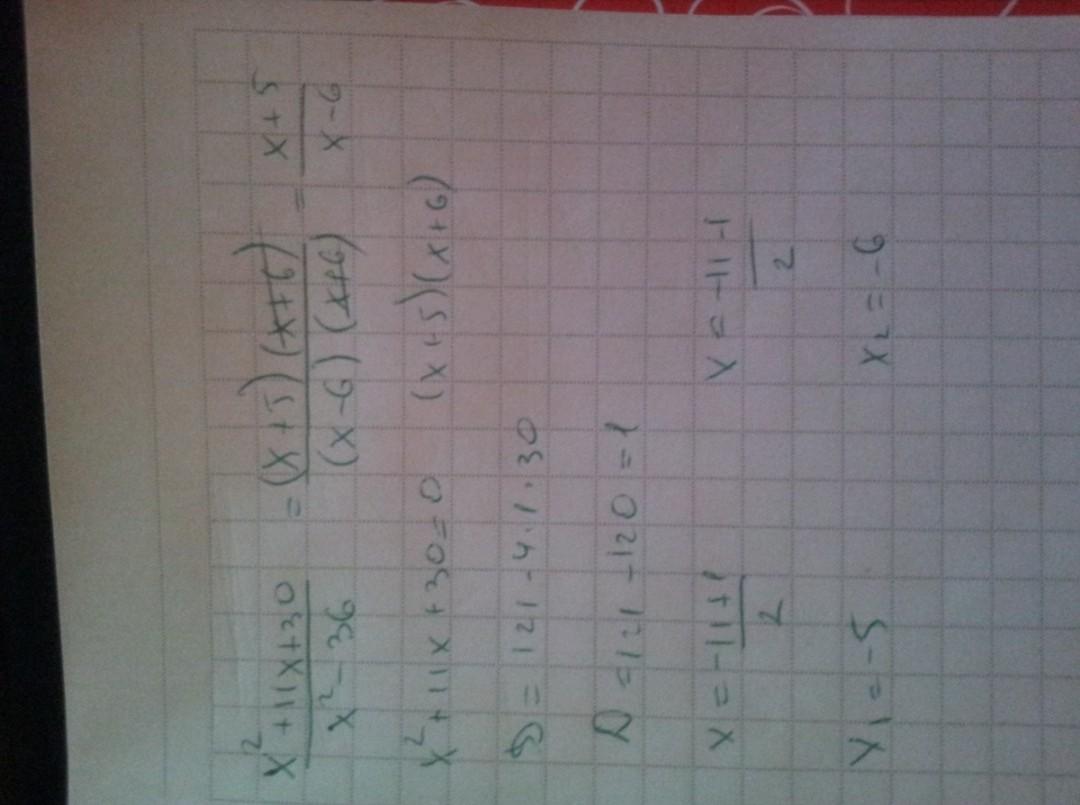 x²+11x+30 / x²-36 = (x+5)(x+6) / (x-6)(x+6) = x+5 / x-6
x²+11x+30=0 (x+5)(x+6)
D=121-4·1·30
D=121-120=1
x=-11+1 / 2 x=-11-1 / 2
x₁=-5 x₂=-6